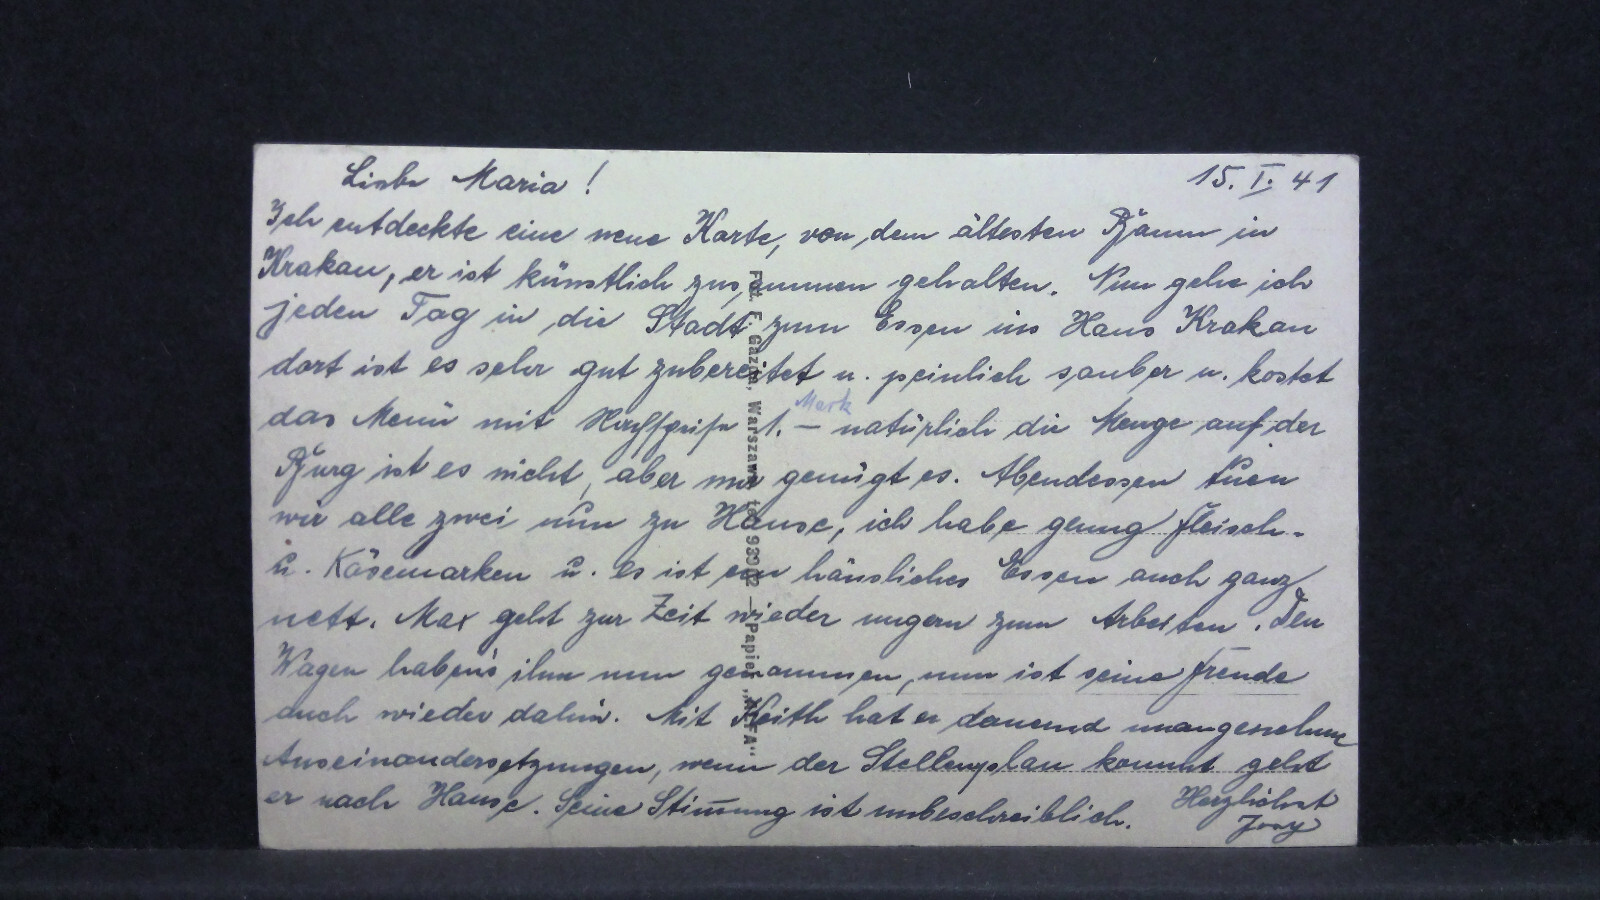 Liebe Maria! 15. I. 41
Ich entdeckte eine neue Karte, von dem ältesten Bäum in
Krakau, er ist künstlich zusammen gehalten. Nun gehe ich
jeden Tag in die Stadt zum Essen ins Haus Krakau
dort ist es sehr gut zubereitet u. peinlich sauber u. kostet
Mark
das Menü mit 1.— natürlich die Menge auf der
Burg ist es nicht, aber mir genügt es. Abendessen tuen
wir alle zwei nun zu Hause, ich habe genug Fleisch-
u. Käsemarken u. es ist ein häusliches Essen auch ganz
nett. Max geht zur Zeit wieder ungern zum Arbeiten. Den
Wagen haben's ihm nun genommen, nun ist seine Freude
auch wieder dahin. Mit Keith hat er dauernd unangenehme
Auseinandersetzungen, wenn der Stellenplan kommt geht
er nach Hause. Seine Stimmung ist unbeschreiblich. Herzlichst
Josy
Warszawa
Papier „ALFA"